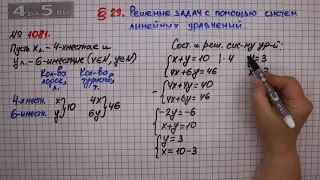 4apo5.ru
§ 29. Решение задач с помощью систем
линейных уравнений.
№ 1081.
Пусть x л. - 4-хместные и
y л. - 6-иместные (x∈N, y∈N)
Кол-во лодок, л. Кол-во туристов, т.
4-хмест. x } 10 4x } 46
6-иместн. y 6y
Сост. и реш. сис-му ур-й:
{ x+y=10 |·4
4x+6y=46
- { 4x+4y=40
4x+6y=46
{ -2y=-6
x+y=10
{ y=3
x=10-3
y=3